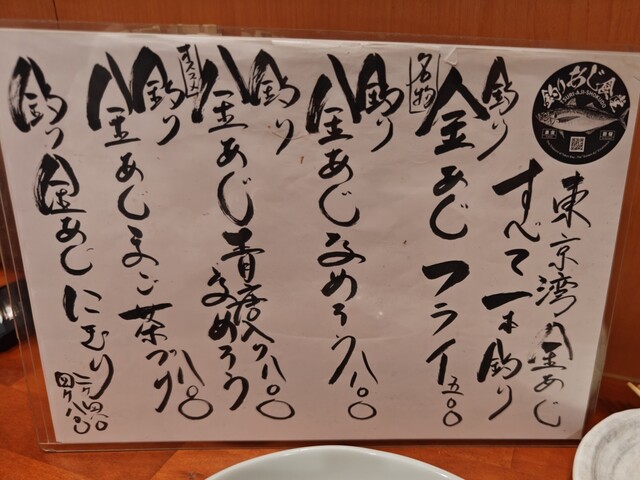 釣りあじ食堂
TSURI-AJI-SHOKUDO
東京湾金あじ
すべて一本釣り
名物
釣り金あじフライ五〇〇
釣り金あじなめろう八〇〇
オススメ
釣り金あじ青唐入りなめろう八〇〇
釣り金あじまご茶づけ八〇〇
釣り金あじにぎり
二ケ四〇〇
四ケ八〇〇